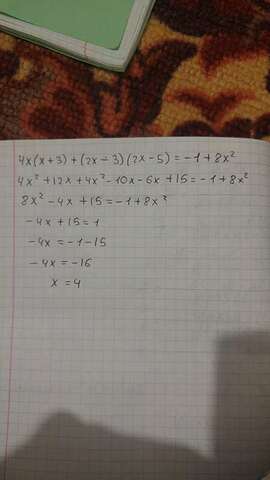 4x(x+3)+(2x-3)(2x-5)=-1+8x²
4x²+12x+4x²-10x-6x+15=-1+8x²
8x²-4x+15=-1+8x²
-4x+15=1
-4x=-1-15
-4x=-16
x=4